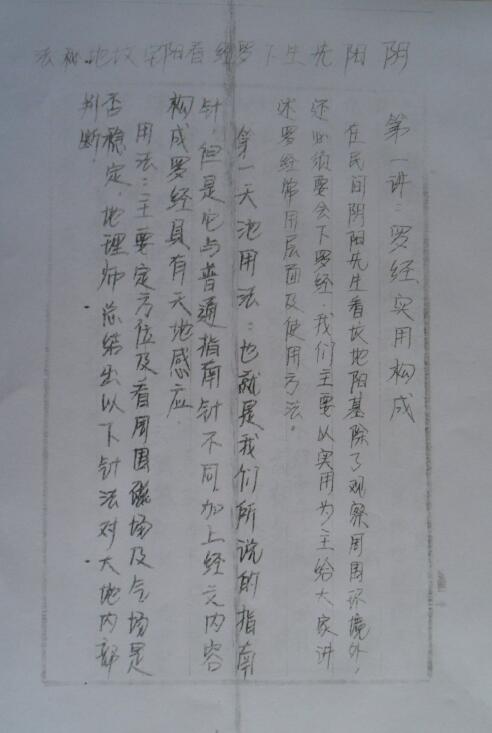 阴阳先生下罗经看阳宅坟地秘法
第一讲：罗经实用构成
在民间阴阳先生看坟地阳基除了观察周围环境外，
还必须要会下罗经．我们主要以实用为主给大家讲
述罗经常用层面及使用方法。
第一天池用法：也就是我们所说的指南
针，但是它与普通指南针不同，加上经文内容
构成罗经具有天地感应．
用法：主要定方位及看周围磁场及气场是
否稳定．地理师总结出以下针法对大地内部
判断．